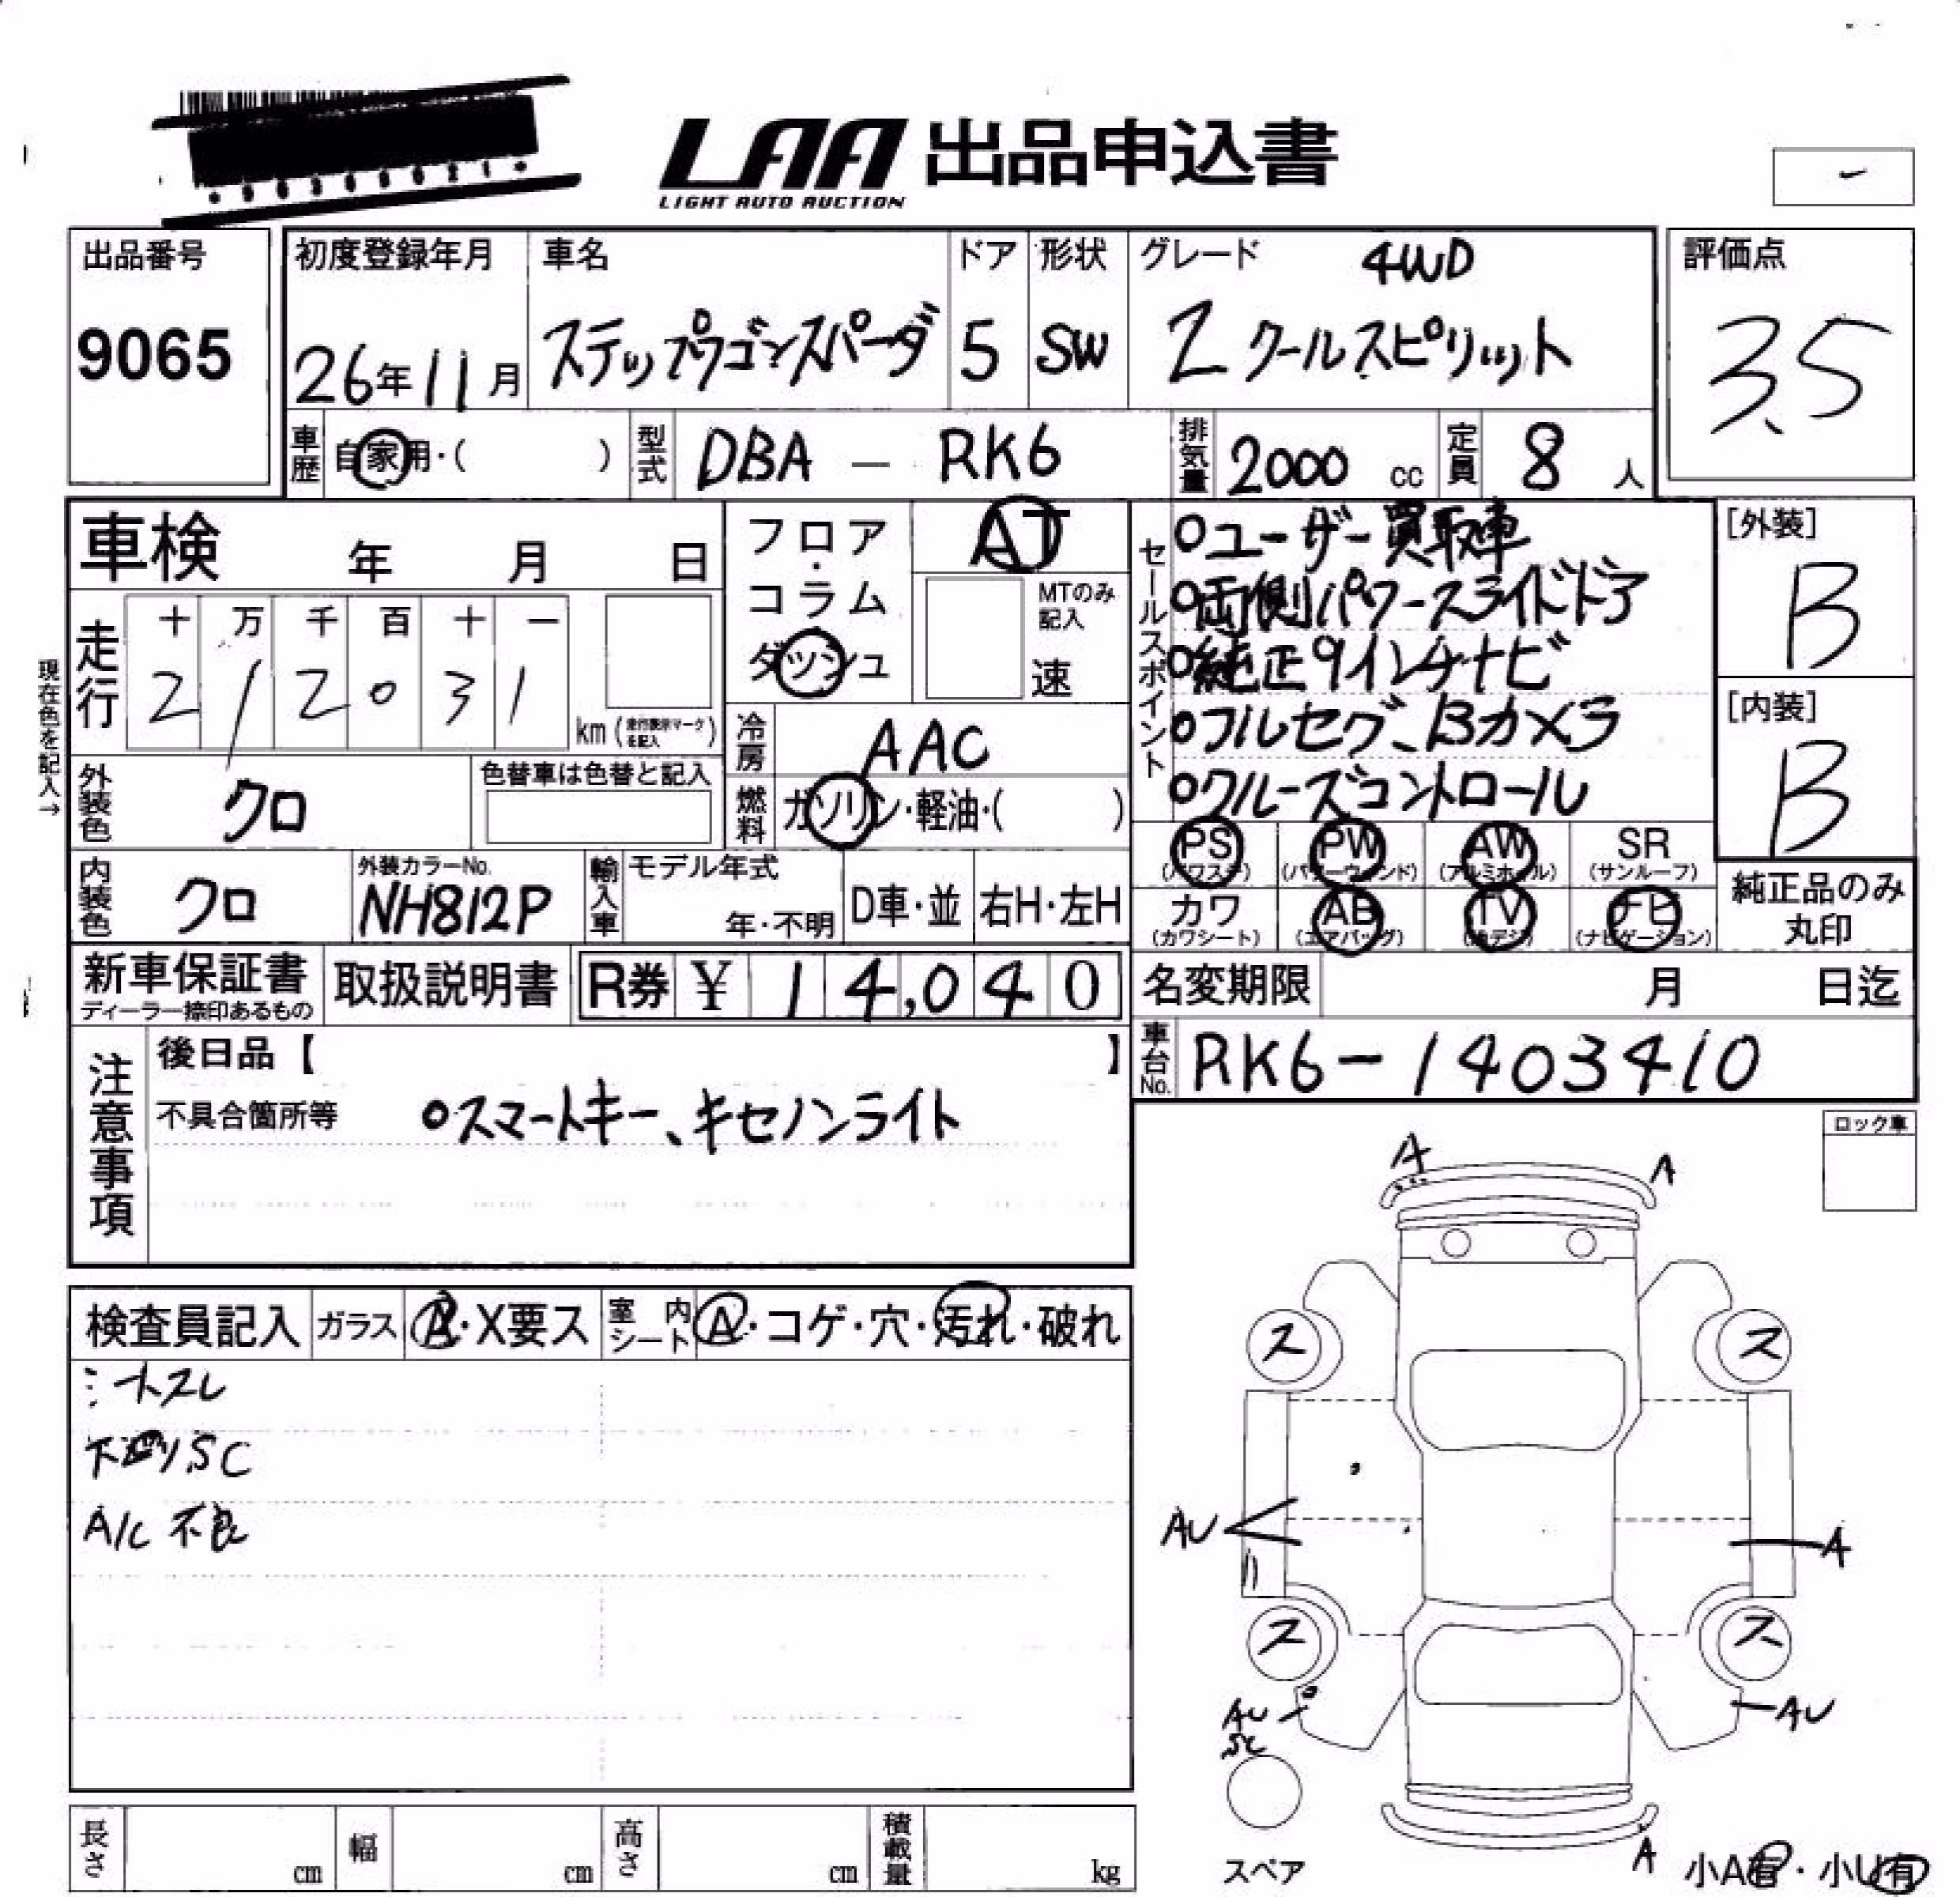 LAA 出品申込書
LIGHT AUTO AUCTION
出品番号
9065
初度登録年月
26年11月
車名
ステップワゴンスパーダ
ドア
5
形状
SW
グレード 4WD
Z クールスピリット
評価点
3.5
車歴 自家用・( )
型式 DBA - RK6
排気量 2000 cc
定員 8 人
車検 年 月 日
現在色を記入→
走行
十 万 千 百 十 一
2 1 2 0 3 1
km (走行表示マークを記入)
フロア・コラム
ダッシュ
AT
MTのみ記入
速
冷房 AAC
燃料 ガソリン・軽油・( )
セールスポイント
○ユーザー買取車
○両側パワースライドドア
○純正9インチナビ
○フルセグ、Bカメラ
○クルーズコントロール
[外装]
B
[内装]
B
外装色 クロ
色替車は色替と記入
内装色 クロ
外装カラーNo.
NH812P
輸入車
モデル年式
年・不明
D車・並
右H・左H
PS (パワステ)
PW (パワーウィンド)
AW (アルミホイル)
SR (サンルーフ)
カワ (カワシート)
AB (エアバッグ)
TV (地デジ)
ナビ (ナビゲーション)
純正品のみ丸印
新車保証書
ディーラー捺印あるもの
取扱説明書
R券 ¥ 14,040
名変期限 月 日迄
車台No. RK6-1403410
注意事項
後日品【 】
不具合箇所等 ○スマートキー、キセノンライト
ロック車
検査員記入
ガラス A・X要ス
室内シート A・コゲ・穴・汚れ・破れ
下廻りSC
A/C 不良
A
A
ス
ス
AU
A
ス
ス
AU
SC
AU
A
スペア
小A有・小U有
長さ cm
幅 cm
高さ cm
積載量 kg